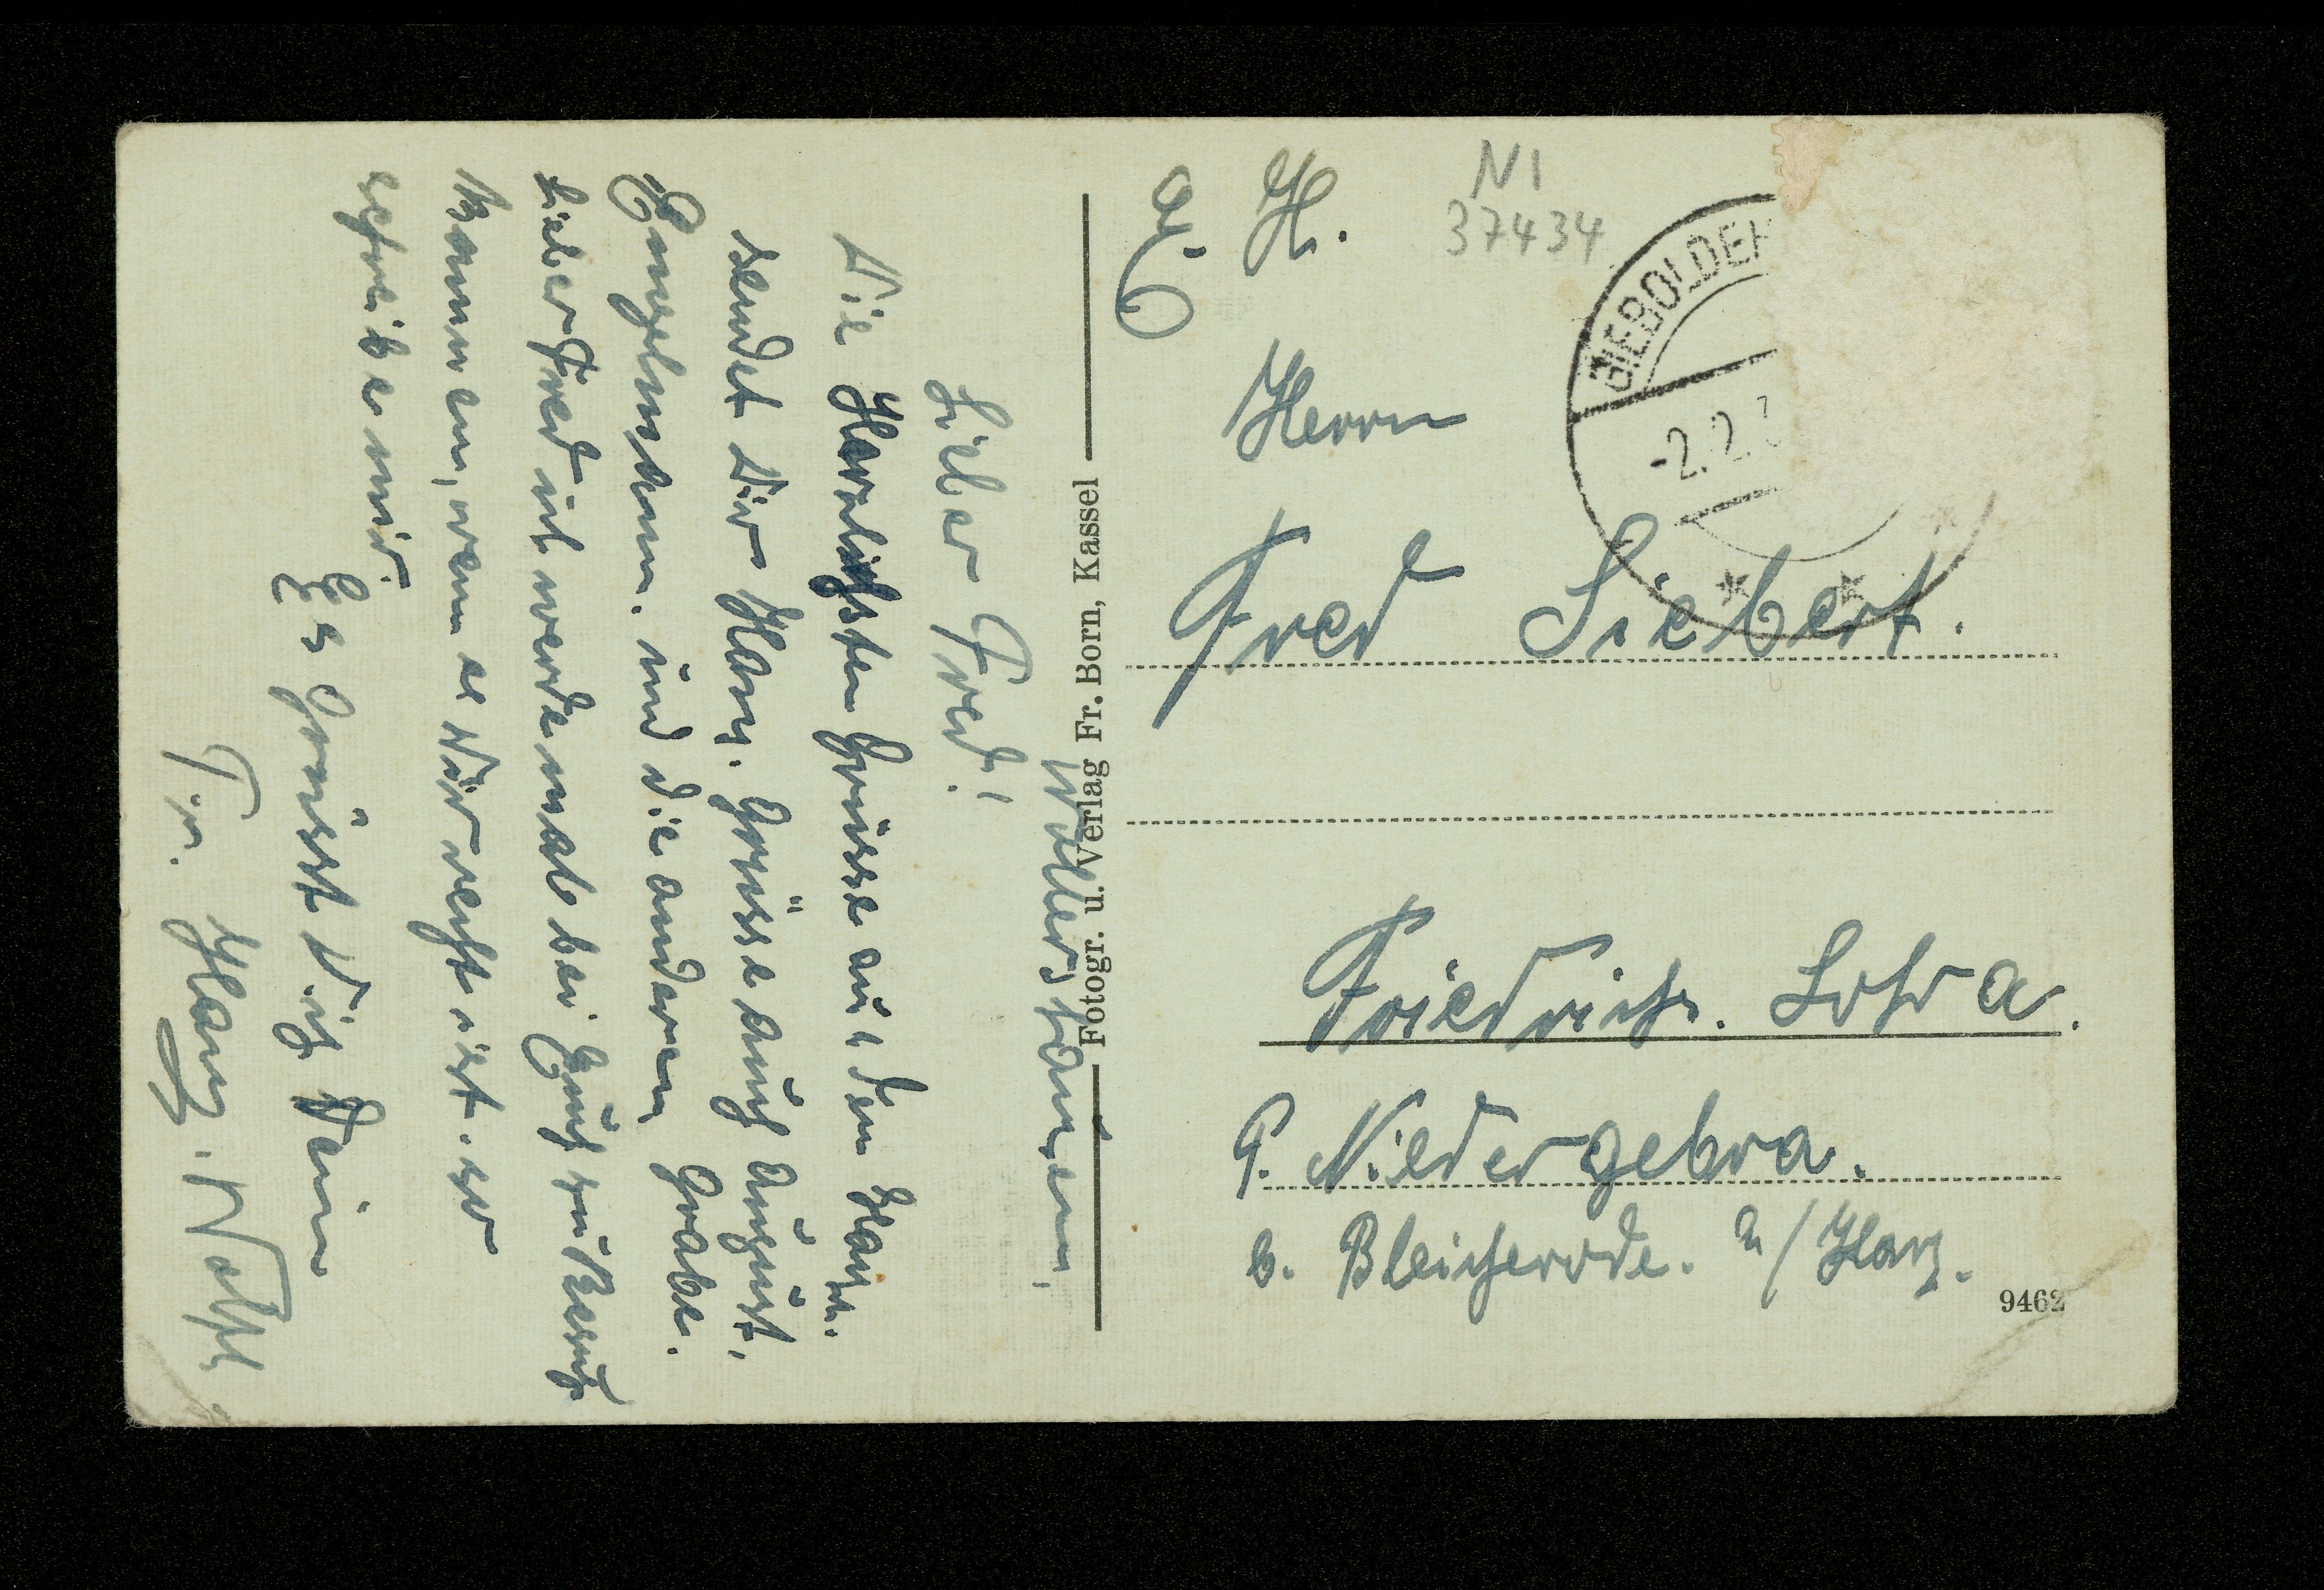 Wollershausen,
Lieber Fred!
Die Herzlichsten Grüsse aus dem Harze.
sendet Dir Hans. Grüsse auch August,
Engelmann. und die anderen Grabe.
Lieber Fred ich werde mal bei Euch zu Besuch
kommen, wenn es Dir recht ist. so
schreibe mir.
Es Grüsst Dich Dein
Fr. Hans.
Fotogr. u. Verlag Fr. Born, Kassel
N1
37434
H.
BIEBOLDEH
-2.2.
Herrn
Fred Siebert.
Friedrich. Lohra.
P. Niedergebra.
b. Bleicherode. a/Harz.
9462